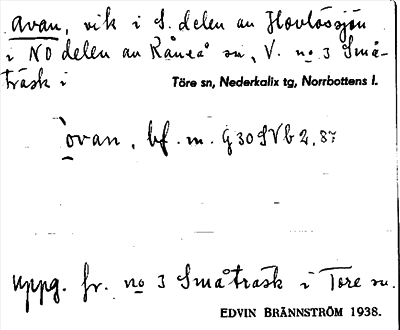 Avan, vik i S. delen av Hovlössjön
i NO delen av Råneå sn, V. no 3 Små-
träsk i Töre sn, Nederkalix tg, Norrbottens l.
`ovan, bf. m. G30SVb2,87
Uppg. fr. no 3 Småträsk i Töre sn.
EDVIN BRÄNNSTRÖM 1938.